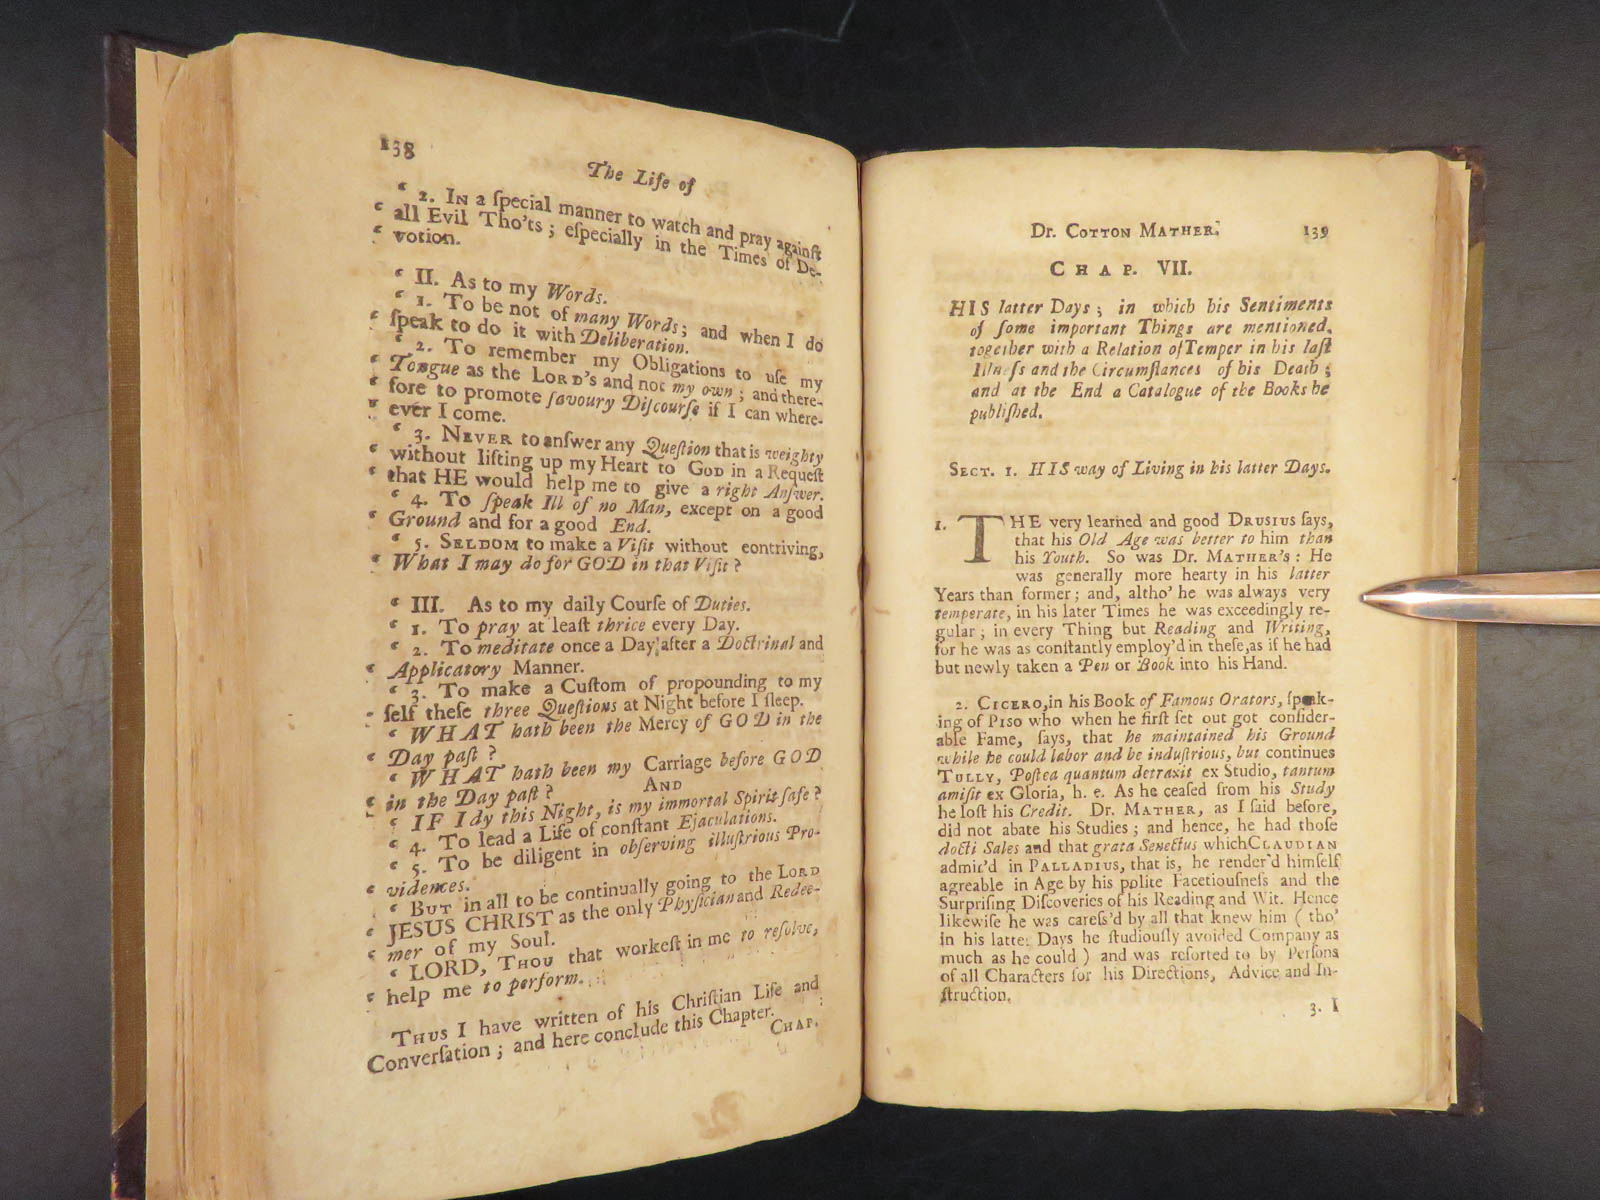 138
The Life of
‘ 2. IN a ſpecial manner to watch and pray againſt
‘ all Evil Tho'ts ; eſpecially in the Times of De-
‘ votion.
‘ II. As to my Words.
‘ 1. To be not of many Words; and when I do
‘ ſpeak to do it with Deliberation.
‘ 2. To remember my Obligations to uſe my
‘ Tongue as the LORD's and not my own ; and there-
‘ fore to promote ſavoury Diſcourſe if I can where-
‘ ever I come.
‘ 3. NEVER to anſwer any Queſtion that is weighty
‘ without lifting up my Heart to GOD in a Requeſt
‘ that HE would help me to give a right Anſwer.
‘ 4. To ſpeak Ill of no Man, except on a good
‘ Ground and for a good End.
‘ 5. SELDOM to make a Viſit without eontriving,
‘ What I may do for GOD in that Viſit ?
‘ III. As to my daily Courſe of Duties.
‘ 1. To pray at leaſt thrice every Day.
‘ 2. To meditate once a Day after a Doctrinal and
‘ Applicatory Manner.
‘ 3. To make a Cuſtom of propounding to my
‘ ſelf theſe three Queſtions at Night before I ſleep.
‘ WHAT hath been the Mercy of GOD in the
‘ Day paſt ?
‘ WHAT hath been my Carriage before GOD
‘ in the Day paſt ? AND
‘ IF I dy this Night, is my immortal Spirit ſafe ?
‘ 4. To lead a Life of conſtant Ejaculations.
‘ 5. To be diligent in obſerving illuſtrious Pro-
‘ vidences.
‘ BUT in all to be continually going to the LORD
‘ JESUS CHRIST as the only Phyſician and Redee-
‘ mer of my Soul.
‘ LORD, THOU that workeſt in me to reſolve,
‘ help me to perform.
THUS I have written of his Chriſtian Life and
Converſation ; and here conclude this Chapter.
CHAP.
Dr. COTTON MATHER. 139
CHAP. VII.
HIS latter Days ; in which his Sentiments
of ſome important Things are mentioned,
together with a Relation of Temper in his laſt
Illneſs and the Circumſtances of his Death ;
and at the End a Catalogue of the Books he
publiſhed.
SECT. 1. HIS way of Living in his latter Days.
1. THE very learned and good DRUSIUS ſays,
that his Old Age was better to him than
his Youth. So was Dr. MATHER's : He
was generally more hearty in his latter
Years than former ; and, altho' he was always very
temperate, in his later Times he was exceedingly re-
gular ; in every Thing but Reading and Writing,
for he was as conſtantly employ'd in theſe, as if he had
but newly taken a Pen or Book into his Hand.
2. CICERO, in his Book of Famous Orators, ſpeak-
ing of PISO who when he firſt ſet out got conſider-
able Fame, ſays, that he maintained his Ground
while he could labor and be induſtrious, but continues
TULLY, Poſtea quantum detraxit ex Studio, tantum
amiſit ex Gloria, h. e. As he ceaſed from his Study
he loſt his Credit. Dr. MATHER, as I ſaid before,
did not abate his Studies ; and hence, he had thoſe
docti Sales and that grata Senectus which CLAUDIAN
admir'd in PALLADIUS, that is, he render'd himſelf
agreable in Age by his polite Facetiouſneſs and the
Surpriſing Diſcoveries of his Reading and Wit. Hence
likewiſe he was careſs'd by all that knew him ( tho'
in his latter Days he ſtudiouſly avoided Company as
much as he could ) and was reſorted to by Perſons
of all Characters for his Directions, Advice and In-
ſtruction.
3. I